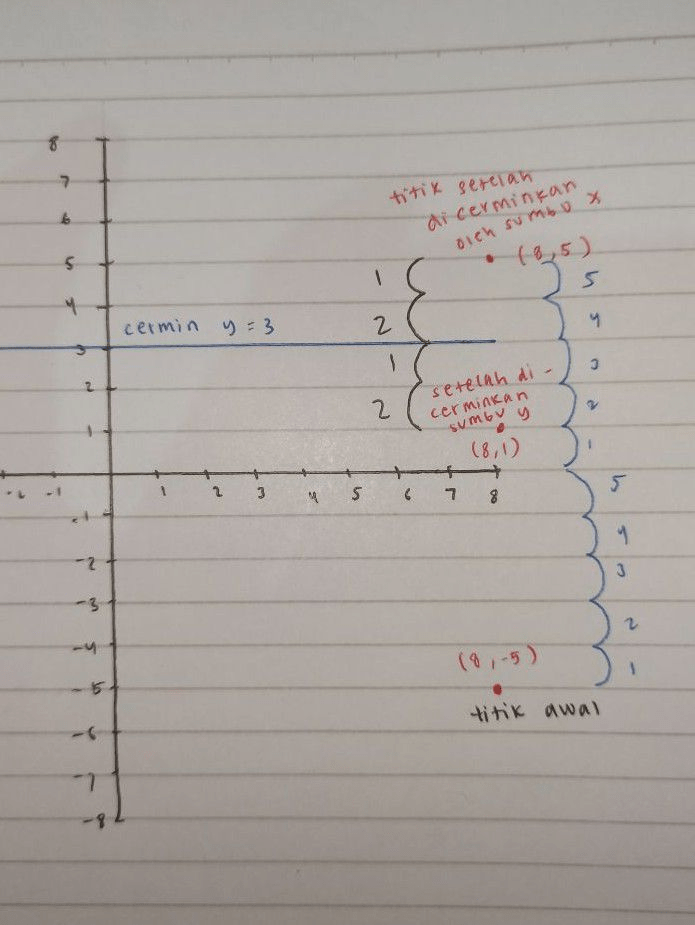 8
7
6
5
4
3
2
1
-2 -1 1 2 3 4 5 6 7 8
-1
-2
-3
-4
-5
-6
-7
-8
cermin y = 3
titik setelah
dicerminkan
oleh sumbu x
(8,5)
1
2
1
2
setelah di-
cerminkan
sumbu y
(8,1)
5
4
3
2
1
5
4
3
2
1
(8,-5)
titik awal